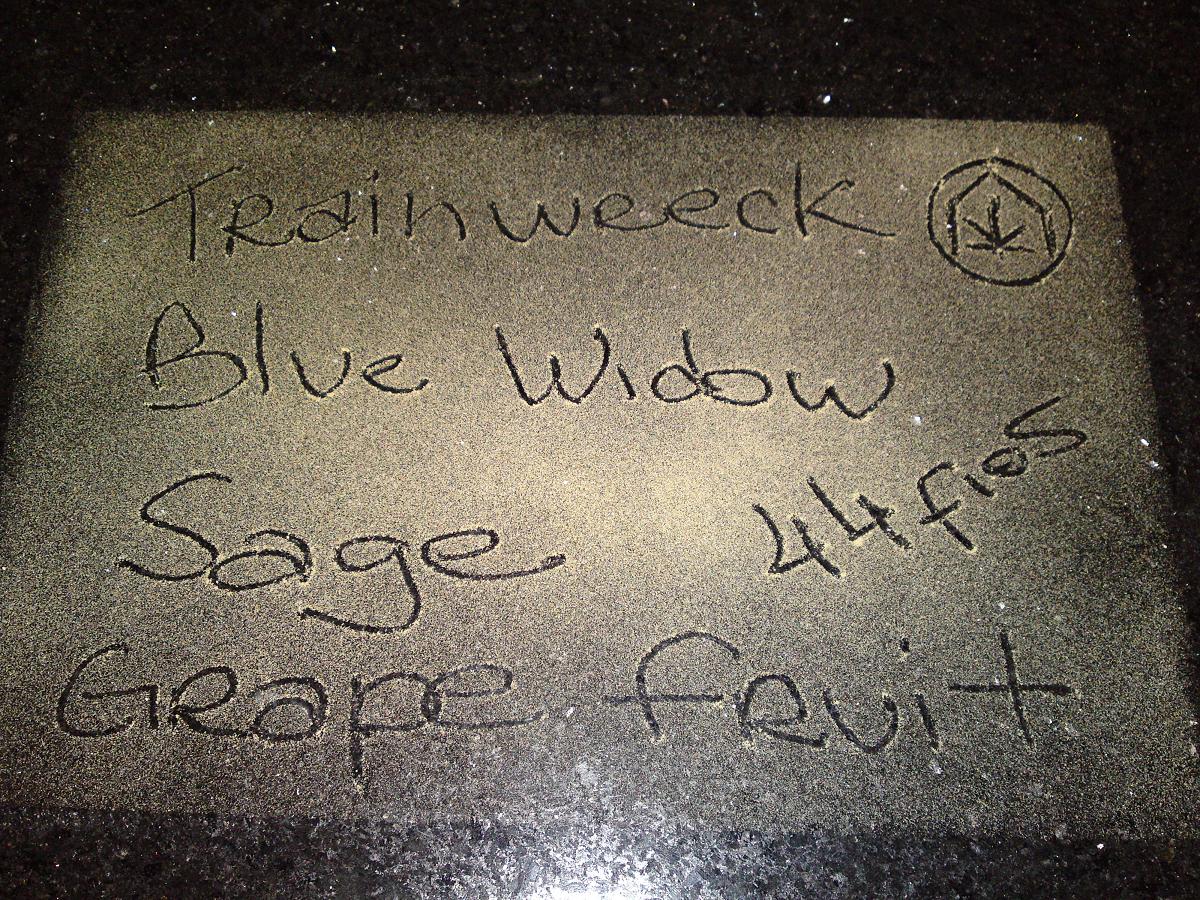 Trainweeck
Blue Widow
Sage 44fios
Grape fruit